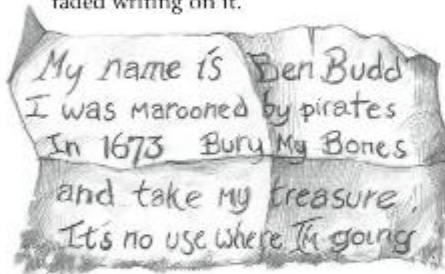 faded writing on it.
My name is Ben Budd
I was marooned by pirates
In 1673 Bury My Bones
and take my treasure.
It's no use where I'm going